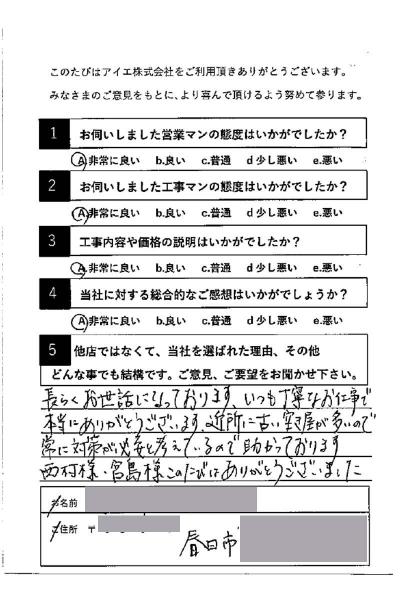 このたびはアイエ株式会社をご利用頂きありがとうございます。
みなさまのご意見をもとに、より喜んで頂けるよう努めて参ります。
1 お伺いしました営業マンの態度はいかがでしたか？
A非常に良い b.良い c.普通 d少し悪い e.悪い
2 お伺いしました工事マンの態度はいかがでしたか？
A非常に良い b.良い c.普通 d少し悪い e.悪い
3 工事内容や価格の説明はいかがでしたか？
A非常に良い b.良い c.普通 d少し悪い e.悪い
4 当社に対する総合的なご感想はいかがでしょうか？
A非常に良い b.良い c.普通 d少し悪い e.悪い
5 他店ではなくて、当社を選ばれた理由、その他
どんな事でも結構です。ご意見、ご要望をお聞かせ下さい。
長らくお世話になっております、いつも丁寧なお仕事で
本当にありがとうございます、近所に古い空き屋が多いので
常に対策が必要と考えているので助かっております
西村様・宮島様このたびはありがとうございました
名前
住所 〒
春日市